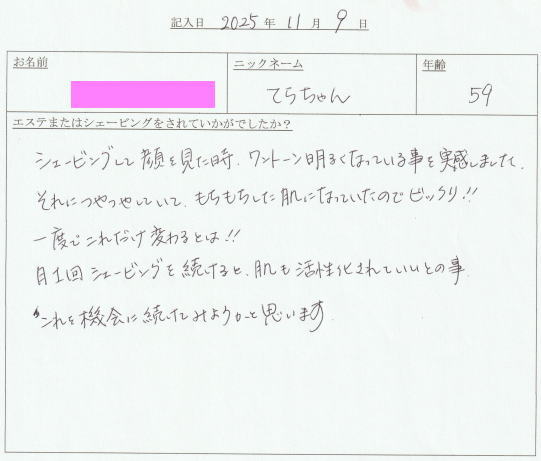 記入日 2025年 11月 9日
お名前 ニックネーム 年齢
てらちゃん 59
エステまたはシェービングをされていかがでしたか?
シェービングして顔を見た時、ワントーン明るくなっている事を実感しました。
それにつやつやしていて、もちもちした肌になっていたのでビックリ!!
一度でこれだけ変わるとは!!
月1回シェービングを続けると、肌も活性化されていいとの事
これを機会に続けてみようかと思います。